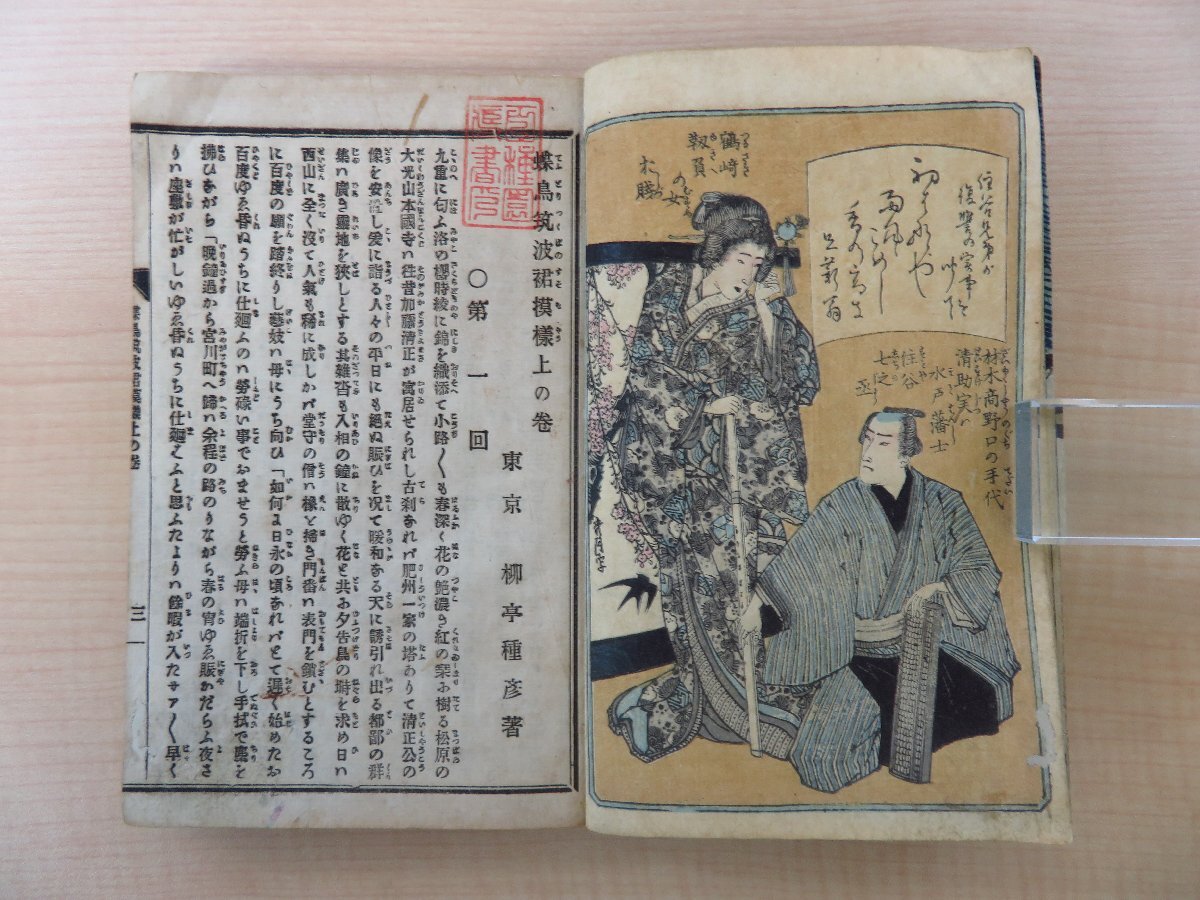 鶴﨑
靱負
の女
お勝
住谷兄弟が
復讐の実事を
材木商野口の手代
清助実ハ
水戸藩士
住谷
七之丞
蝶鳥筑波裙摸樣上の卷
東京 柳亭種彦著
○第一回
九重に匂ふ洛の櫻時綾に錦を織添て小路〱も春深く花の艶濃き紅の栞お樹る松原の
大光山本國寺ハ往昔加藤清正が寓居せられし古刹なれバ肥州一家の塔ありて清正公の
像を安置し爰に詣る人々の平日にも絶ぬ賑ひを况て暖和なる天に誘引れ出る都鄙の群
集ハ廣き靈地を狹しとする其雜沓も入相の鐘に散ゆく花と共お夕告鳥の塒を求め日ハ
西山に全く沒て人氣も稀に成しかバ堂守の僧ハ椽を掃き門番ハ表門を鎖むとするころ
に百度の願を踏終りし藝妓ハ母にうち向ひ「如何ま日永の頃なれバとて遲く始めたお
百度ゆゑ昏ぬうちに仕廻ふのハ勞碌い事でおませうと勞ふ母ハ端折を下し手拭で塵を
拂ひながら「晩鐘過から宮川町へ歸ハ余程の路のりながら春の宵ゆゑ賑かだらふ夜さ
りハ座敷が忙がしいゆゑ昏ぬうちに仕廻ふふと思ふたよりハ餘暇が入たサア〱早く
三